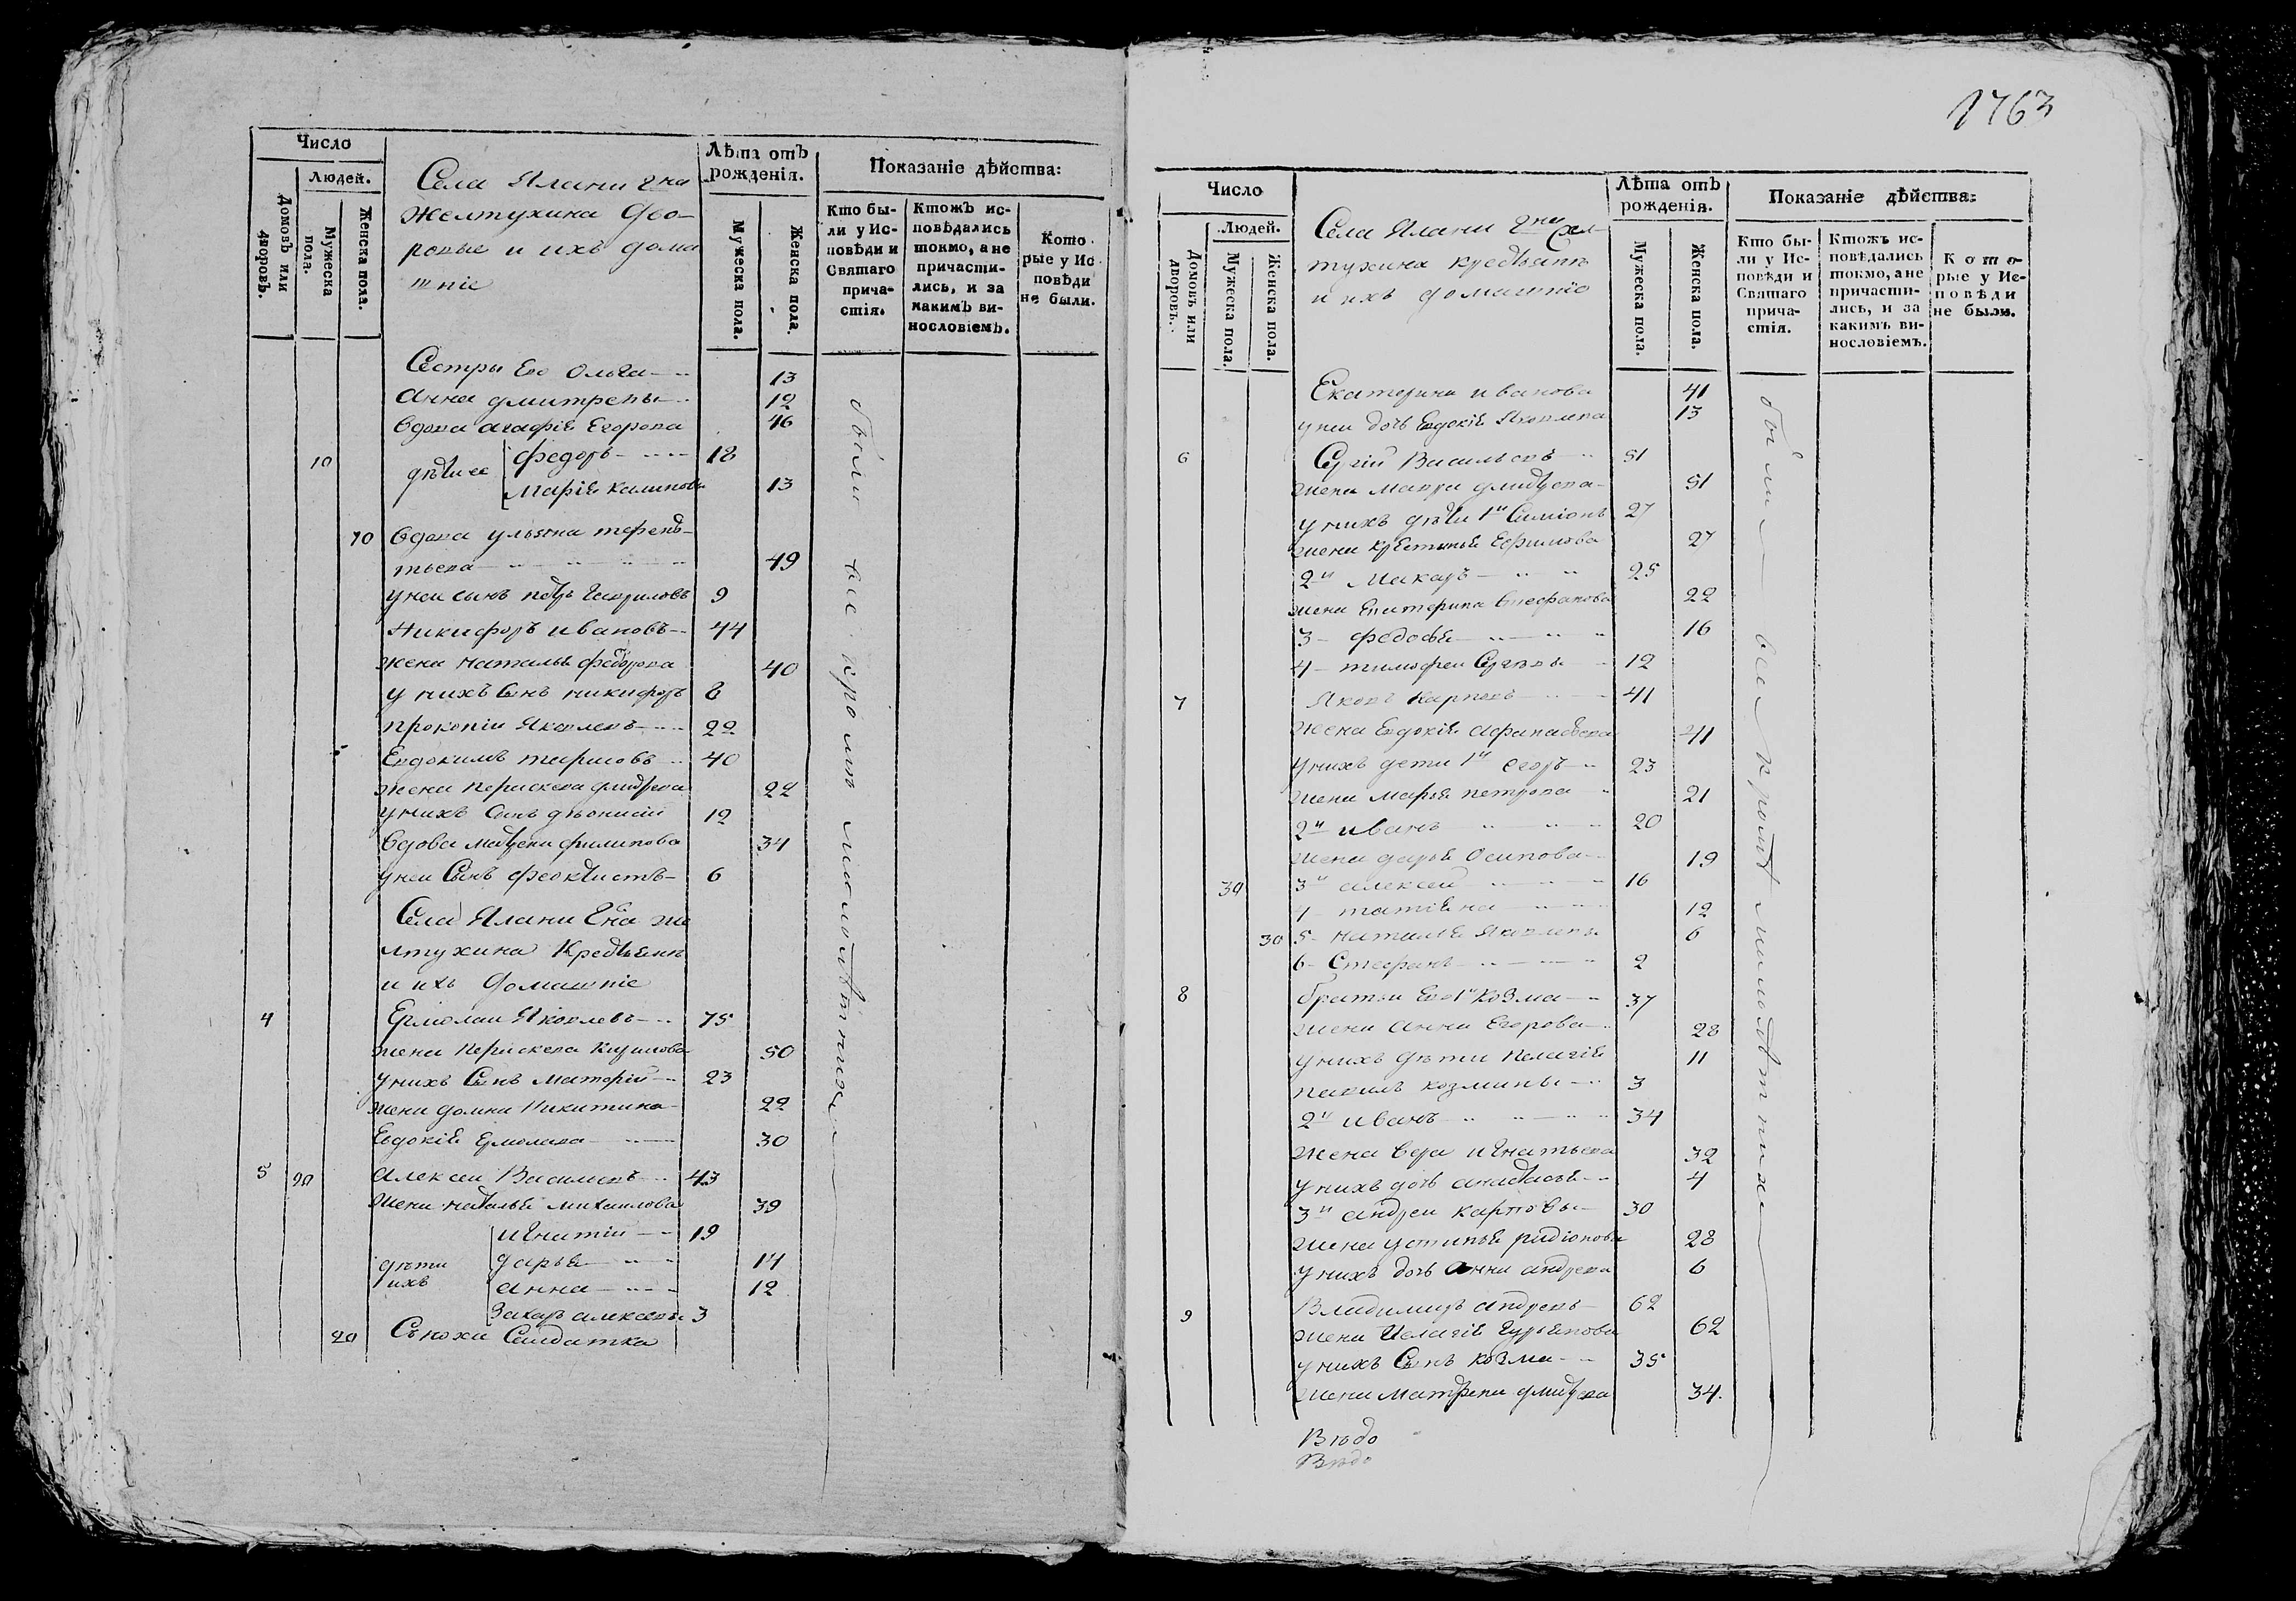 Число
Людей.
Домовъ или дворовъ.
Мужеска пола.
Женска пола.
Села Ялани Гна
Желтухина Дво-
ровые и ихъ дома
шніе
Лѣта отъ рожденія.
Мужеска пола.
Женска пола.
Показаніе дѣйства:
Кто бы-
ли у Ис-
повѣди и
Святаго
прича-
стія.
Ктожъ ис-
повѣдались
токмо, а не
причасти-
лись, и за
какимъ ви-
нословіемъ.
Кото-
рые у Ис-
повѣди
не были.
Сестры Его Ольга 13
Анна Дмитревы 12
Вдова Агафія Егорова 46
10 дѣти ее Федоръ 18
Марія Калиновы 13
10 Вдова Ульяна терень-
тьева 49
у неи сынъ петръ Гавриловъ 9
Никифоръ Ивановъ 44
жена Наталья федорова 40
у нихъ Сынъ никифоръ 8
Прокопіи Яковлевъ 22
Евдокимъ тарисовъ 40
жена Параскева дмитрева 22
у нихъ Сынъ діонисій 12
Вдова Матрена филипова 34
у неи Сынъ феоктистъ 6
Села Ялани Гна Же
лтухина Крестьянъ
и ихъ Домашніе
4 Ермолаи Яковлевъ 75
жена Параскева Кирилова 50
у нихъ Сынъ Матфій 23
жена домна Никитина 22
Евдокія Ермолаева 30
5 20 Алексеи Васильевъ 43
жена Наталья михаилова 39
дѣти ихъ Игнатіи 19
дарья 14
анна 12
Захаръ алексеевы 3
20 Сноха Салдатка
были все кромѣ малолѣтнихъ
1763
Число
Людей.
Домовъ или дворовъ.
Мужеска пола.
Женска пола.
Села Ялани Гна Жел-
тухина крестьянъ
и ихъ домашніе
Лѣта отъ рожденія.
Мужеска пола.
Женска пола.
Показаніе дѣйства:
Кто бы-
ли у Ис-
повѣди и
Святаго
прича-
стія.
Ктожъ ис-
повѣдались
токмо, а не
причасти-
лись, и за
какимъ ви-
нословіемъ.
Кото-
рые у Ис-
повѣди
не были.
Екатерина иванова 41
у неи дочь Евдокія Яковлева 13
6 Сергій Васильевъ 51
жена Мавра дмитрева 51
у нихъ дѣти 1й Симіонъ 27
жена Крестинья Ефимова 27
2й Макаръ 25
жена Екатерина Стефанова 22
3 федосья 16
4 тимофеи Сергеевы 12
7 Яковъ Карповъ 41
жена Евдокія Афанасьева 41
у нихъ дети 1й егоръ 23
жена Марья петрова 21
2й иванъ 20
жена дарья Осипова 19
30 3й алексеи 16
4 татіяна 12
30 5 наталья Яковлевы 6
6 Стефанъ 2
8 братьи Его 1й Козма 37
жена Анна Егорова 28
у нихъ дѣти Пелагія 11
павилъ козмины 3
2й иванъ 34
жена Вера игнатьева 32
у нихъ дочь анастасія 4
3й андреи карповы 30
жена устинья радіонова 28
у нихъ дочь Анна андрева 6
9 Владимиръ андревъ 62
жена Пелагія Гурьянова 62
у нихъ Сынъ козма 35
жена Матрена дмитрева 34
были все кромѣ малолѣтнихъ
Вѣдо
Вѣдо